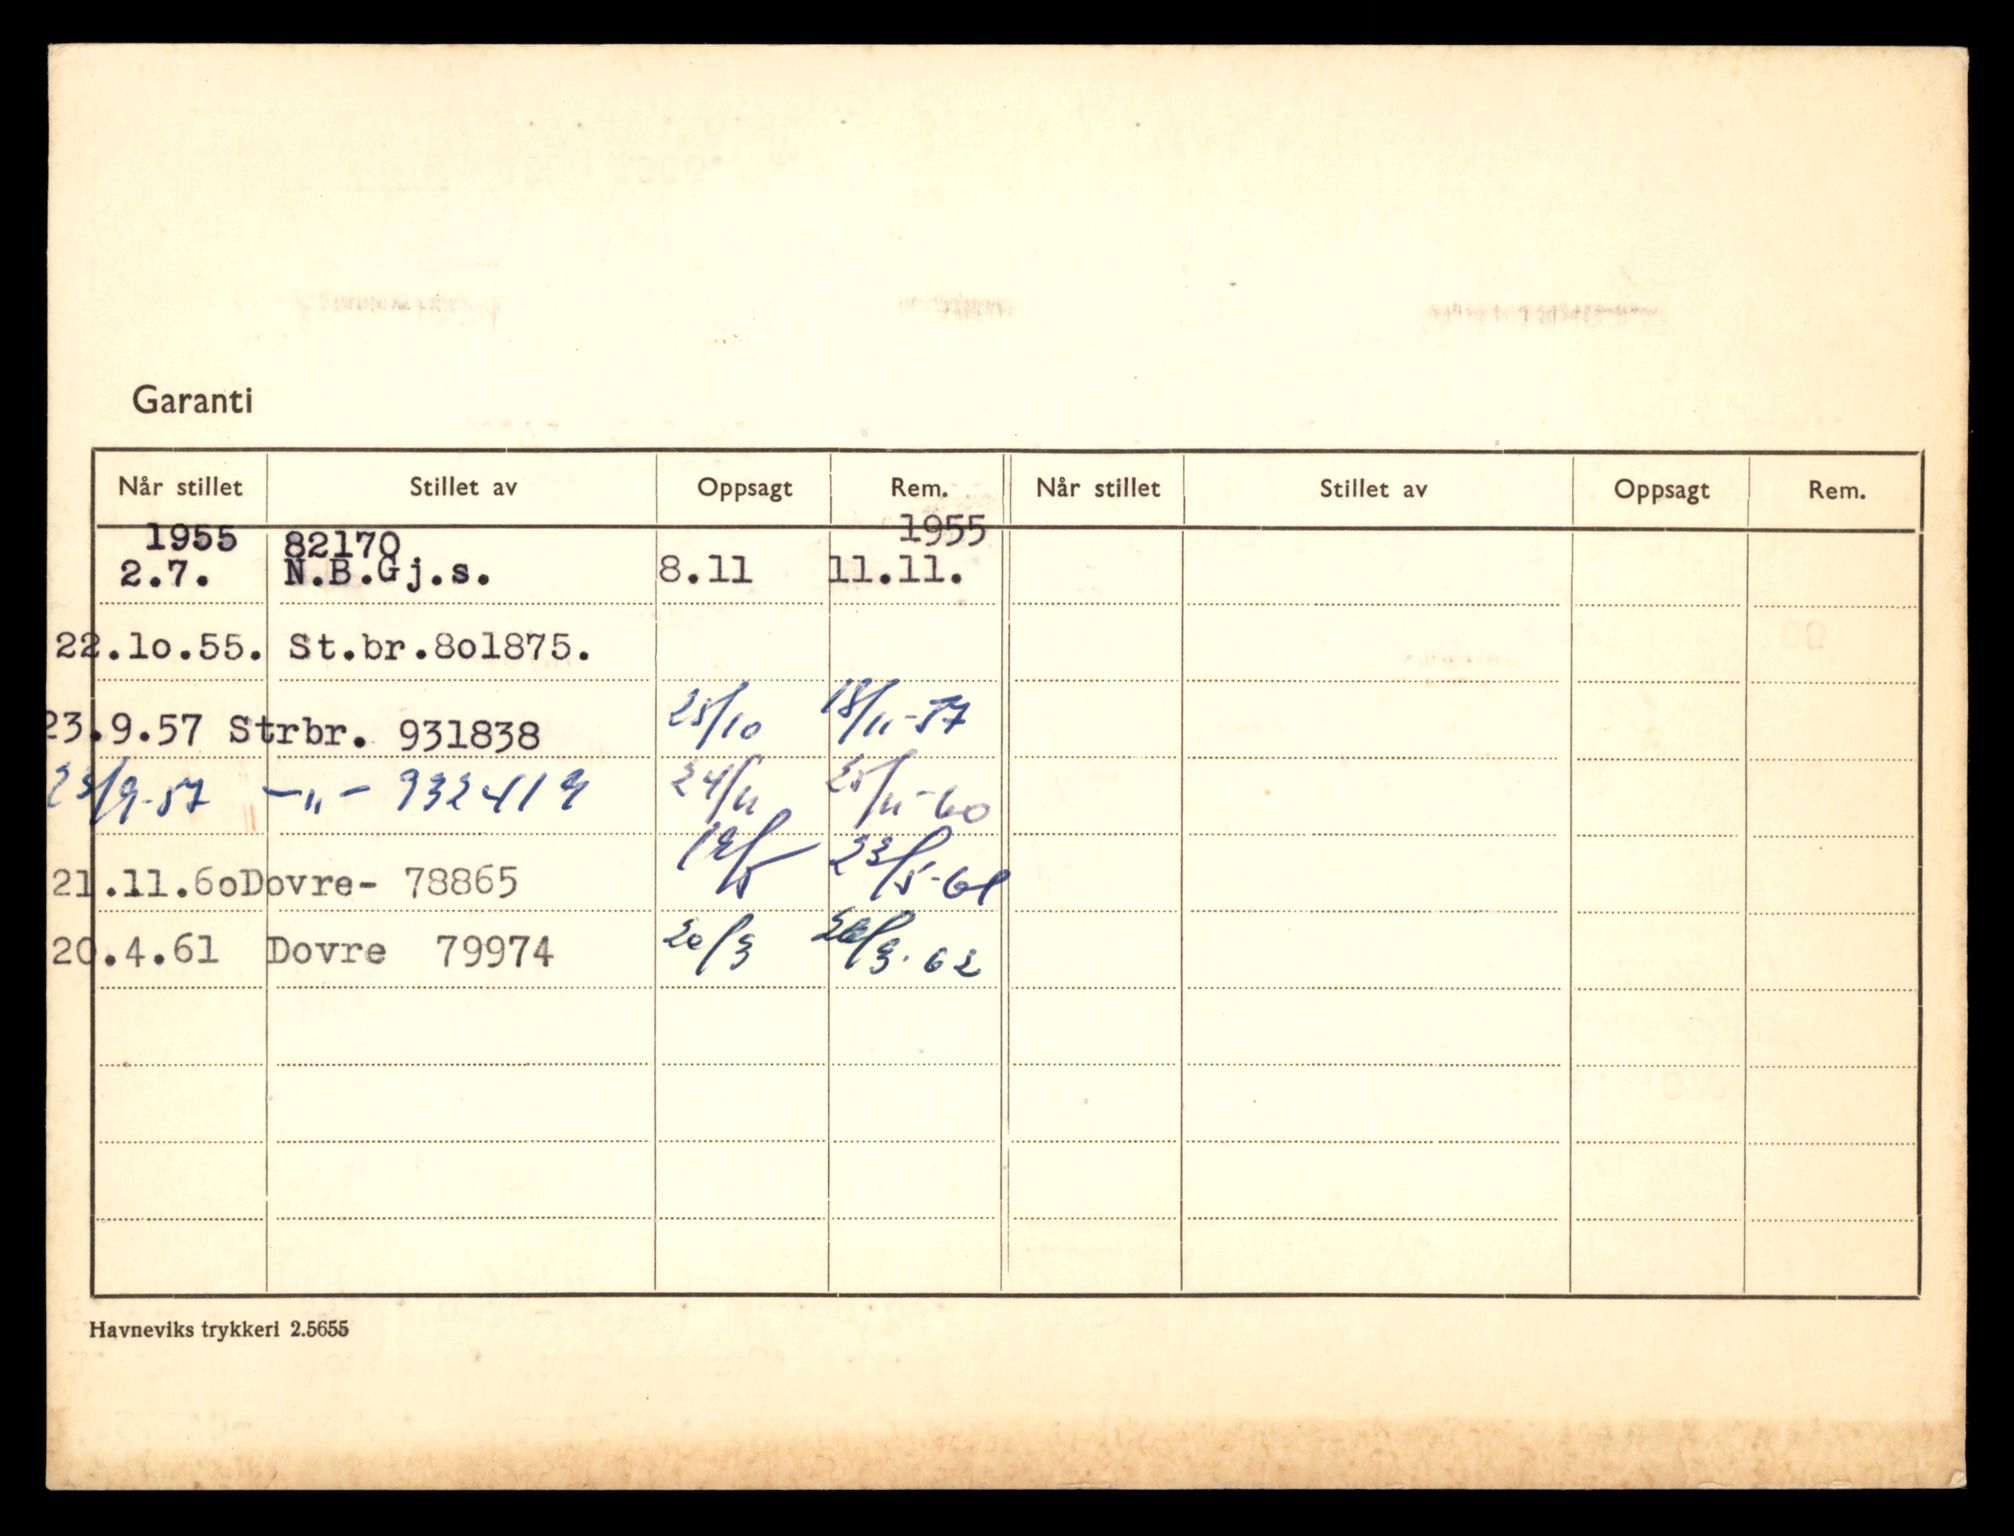 Garanti
Når stillet Stillet av Oppsagt Rem. Når stillet Stillet av Oppsagt Rem.
1955 82170 1955
2.7. N.B.Gj.s. 8.11 11.11.
22.lo.55. St.br.8o1875.
23.9.57 Strbr. 931838 25/10 18/11-57
23/9-57 -"- 932419 24/11 25/11-60
21.11.6oDovre- 78865 19/5 23/5-61
20.4.61 Dovre 79974 20/3 /3.62
Havneviks trykkeri 2.5655